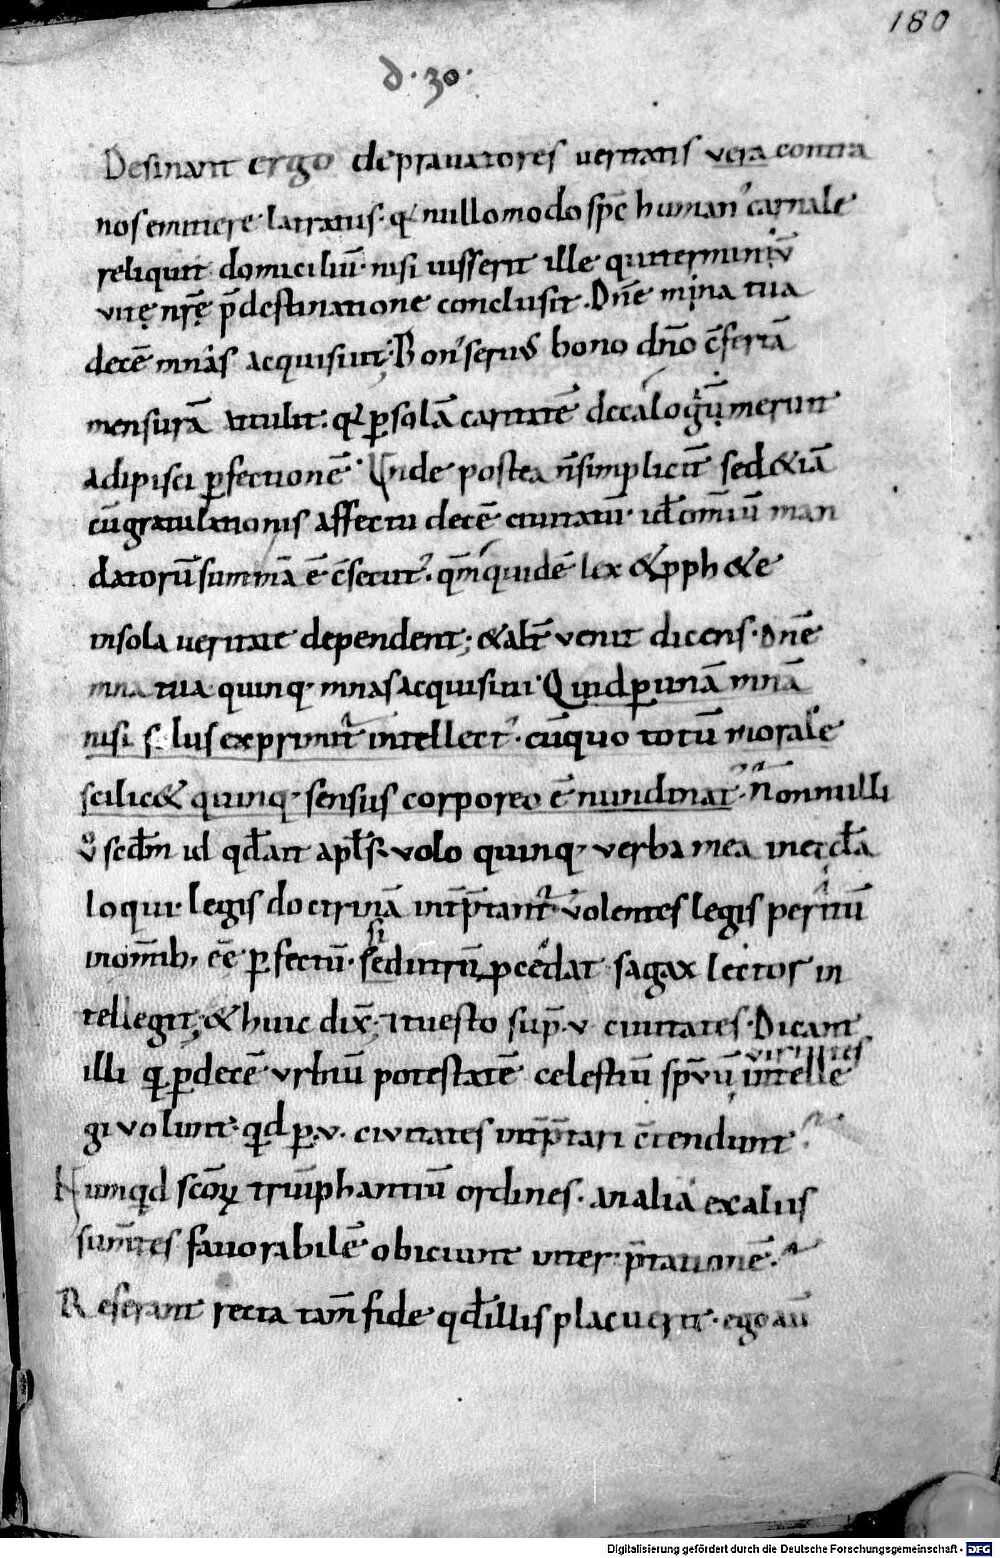 180
d. 30.
Desinant ergo deprauatores ueritatis uera contra
nos emittere latratus. q᷒ nullomodo spc̄ human᷒ carnale
reliquit domiciliū. nisi iusserit ille qui terminū
vitę nrę̄ p̄destinatione conclusit. Dn̄e mina tua
decē mnas acquisiuit; Bon᷒ seruus bono dn̄o c̄fertā
mensurā attulit. q ꝑ solā caritatē decalogū meruit
adipisci ꝑfectionē. Vnde postea n̄ simpliciť sed & iā
cū gratulationis affectu decē ciuitatū id ÷ om̄iū man
datorū summā ē c̄secut᷒. qm̄ quidē lex & pph&e
in sola ueritate dependent; & alt̄ venit dicens. Dn̄e
mna tua quinq· mnas acquisiuit. Quid ꝑ unā mnā
nisi lus exprimit᷒ intellect᷒. cū quo totū morale
scilic& quinq· sensus corporeo ē nundinat᷒. Nonnulli
v̊ scd̄m id qd̄ ait apl̄s. volo quinq· verba mea in ecc̄la
loqui. legis doctrinā int̄p̄tant᷒. volentes legis peritū
in om̄ib; eē ꝑfectū. sed utrū ꝓcedat sagax lector in
tellegit; & huic dix̄; Et tu esto sup̄ v ciuitates. Dicant
illi q ꝑ decē vrbiū potestatē celestiū sp̄uū uirtutes intelle
gi volunt. qd ꝑ v. civitates int̄p̄tari c̄tendunt
Numqd scōꝝ triūphantiū ordines. an alia ex aliis
sum̄tes fauorabilē obiciunt inter p̄tationē.
Reserant recta tam̄ fide qd̄ illis placuerit. ego aū
Digitalisierung gefördert durch die Deutsche Forschungsgemeinschaft - DFG